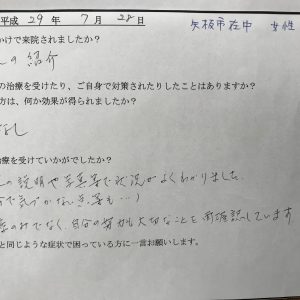 平成 29 年 7 月 28 日 矢板市在中 女性
かけで来院されましたか?
の紹介
の治療を受けたり、ご自身で対策されたりしたことはありますか?
方は、何か効果が得られましたか?
なし
治療を受けていかがでしたか?
の説明や写真等で状況がよくわかりました。
で気づかない点等も…)
のみでなく、自分の努力も大切なことを再確認しています
と同じような症状で困っている方に一言お願いします。